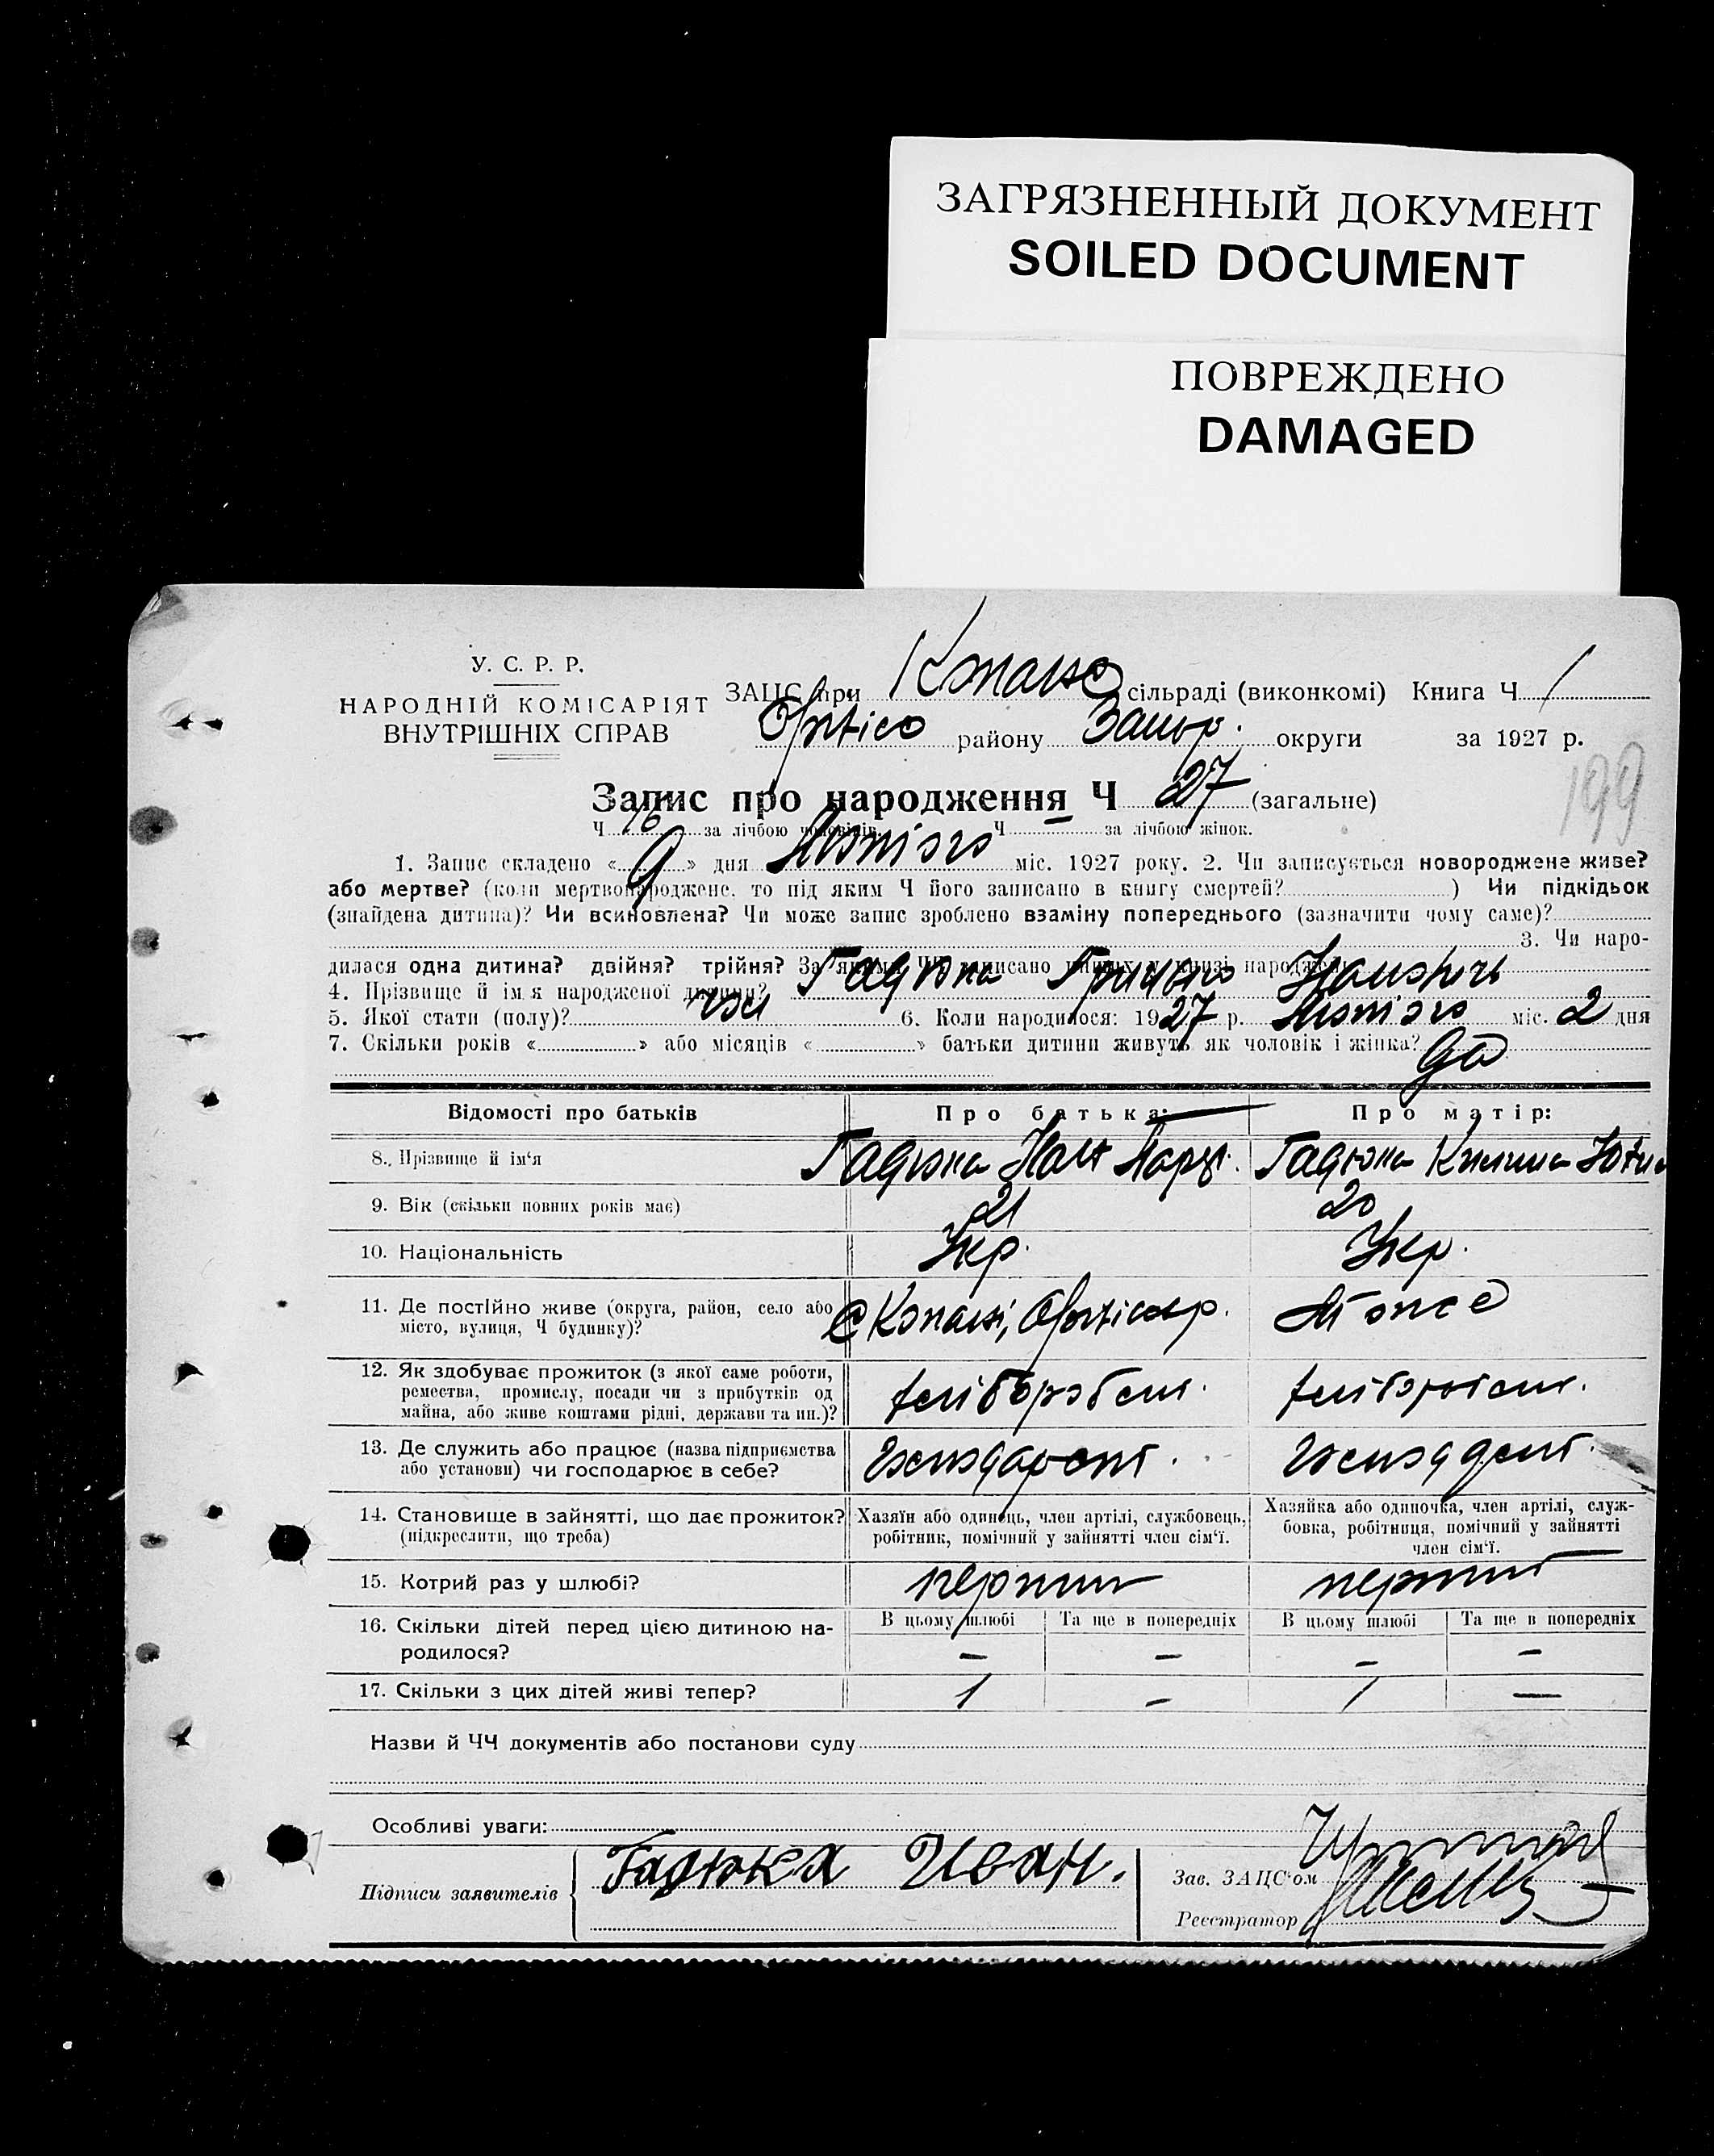 ЗАГРЯЗНЕННЫЙ ДОКУМЕНТ
SOILED DOCUMENT
ПОВРЕЖДЕНО
DAMAGED
У. С. Р. Р.
НАРОДНІЙ КОМІСАРІЯТ
ВНУТРІШНІХ СПРАВ
ЗАЦС при сільраді (виконкомі) Книга Ч 1
району Запор. округи за 1927 р.
199
Запис про народження Ч 27 (загальне)
Ч 16 за лічбою чоловіків Ч — за лічбою жінок.
1. Запис складено « 9 » дня міс. 1927 року. 2. Чи записується новороджене живе?
або мертве? (коли мертвонароджене, то під яким Ч його записано в книгу смертей? ) Чи підкідьок
(знайдена дитина)? Чи всиновлена? Чи може запис зроблено взаміну попереднього (зазначити чому саме)?
3. Чи наро-
дилася одна дитина? двійня? трійня? За якими ЧЧ записано инших у книзі народжень
4. Прізвище й ім'я народженої дитини? Гадюка
5. Якої стати (полу)? чол 6. Коли народилося: 1927 р. міс. 2 дня
7. Скільки років « » або місяців « » батьки дитини живуть як чоловік і жінка? да
Відомості про батьків Про батька: Про матір:
8. Прізвище й ім'я Гадюка Гадюка
9. Вік (скільки повних років має) 21 20
10. Національність Укр. Укр.
11. Де постійно живе (округа, район, село або
місто, вулиця, Ч будинку)?
12. Як здобуває прожиток (з якої саме роботи,
ремества, промислу, посади чи з прибутків од
майна, або живе коштами рідні, держави та ин.)?
13. Де служить або працює (назва підприємства
або установи) чи господарює в себе?
14. Становище в зайнятті, що дає прожиток?
(підкреслити, що треба)
Хазяїн або одинець, член артілі, службовець,
робітник, помічний у зайнятті член сім'ї.
Хазяйка або одиночка, член артілі, служ-
бовка, робітниця, помічний у зайнятті
член сім'ї.
15. Котрий раз у шлюбі? перший перший
16. Скільки дітей перед цією дитиною на-
родилося?
В цьому шлюбі Та ще в попередніх В цьому шлюбі Та ще в попередніх
— — — —
17. Скільки з цих дітей живі тепер? 1 — 1 —
Назви й ЧЧ документів або постанови суду
Особливі уваги:
Підписи заявителів Гадюка Иван.
Зав. ЗАЦС'ом
Реєстратор